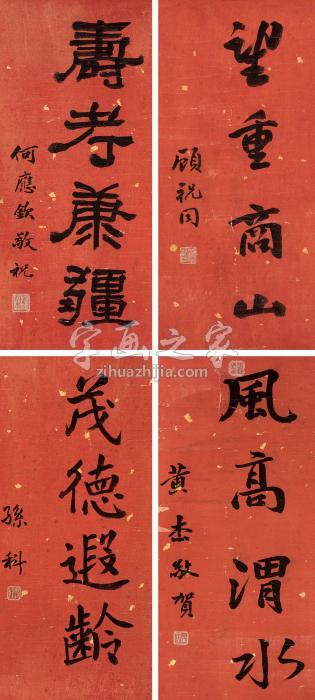 望重商山
顧祝同
壽考康疆
何應欽敬祝
字画之家
zihuazhijia.com
風高渭水
黃杰敬賀
茂德遐齡
孫科